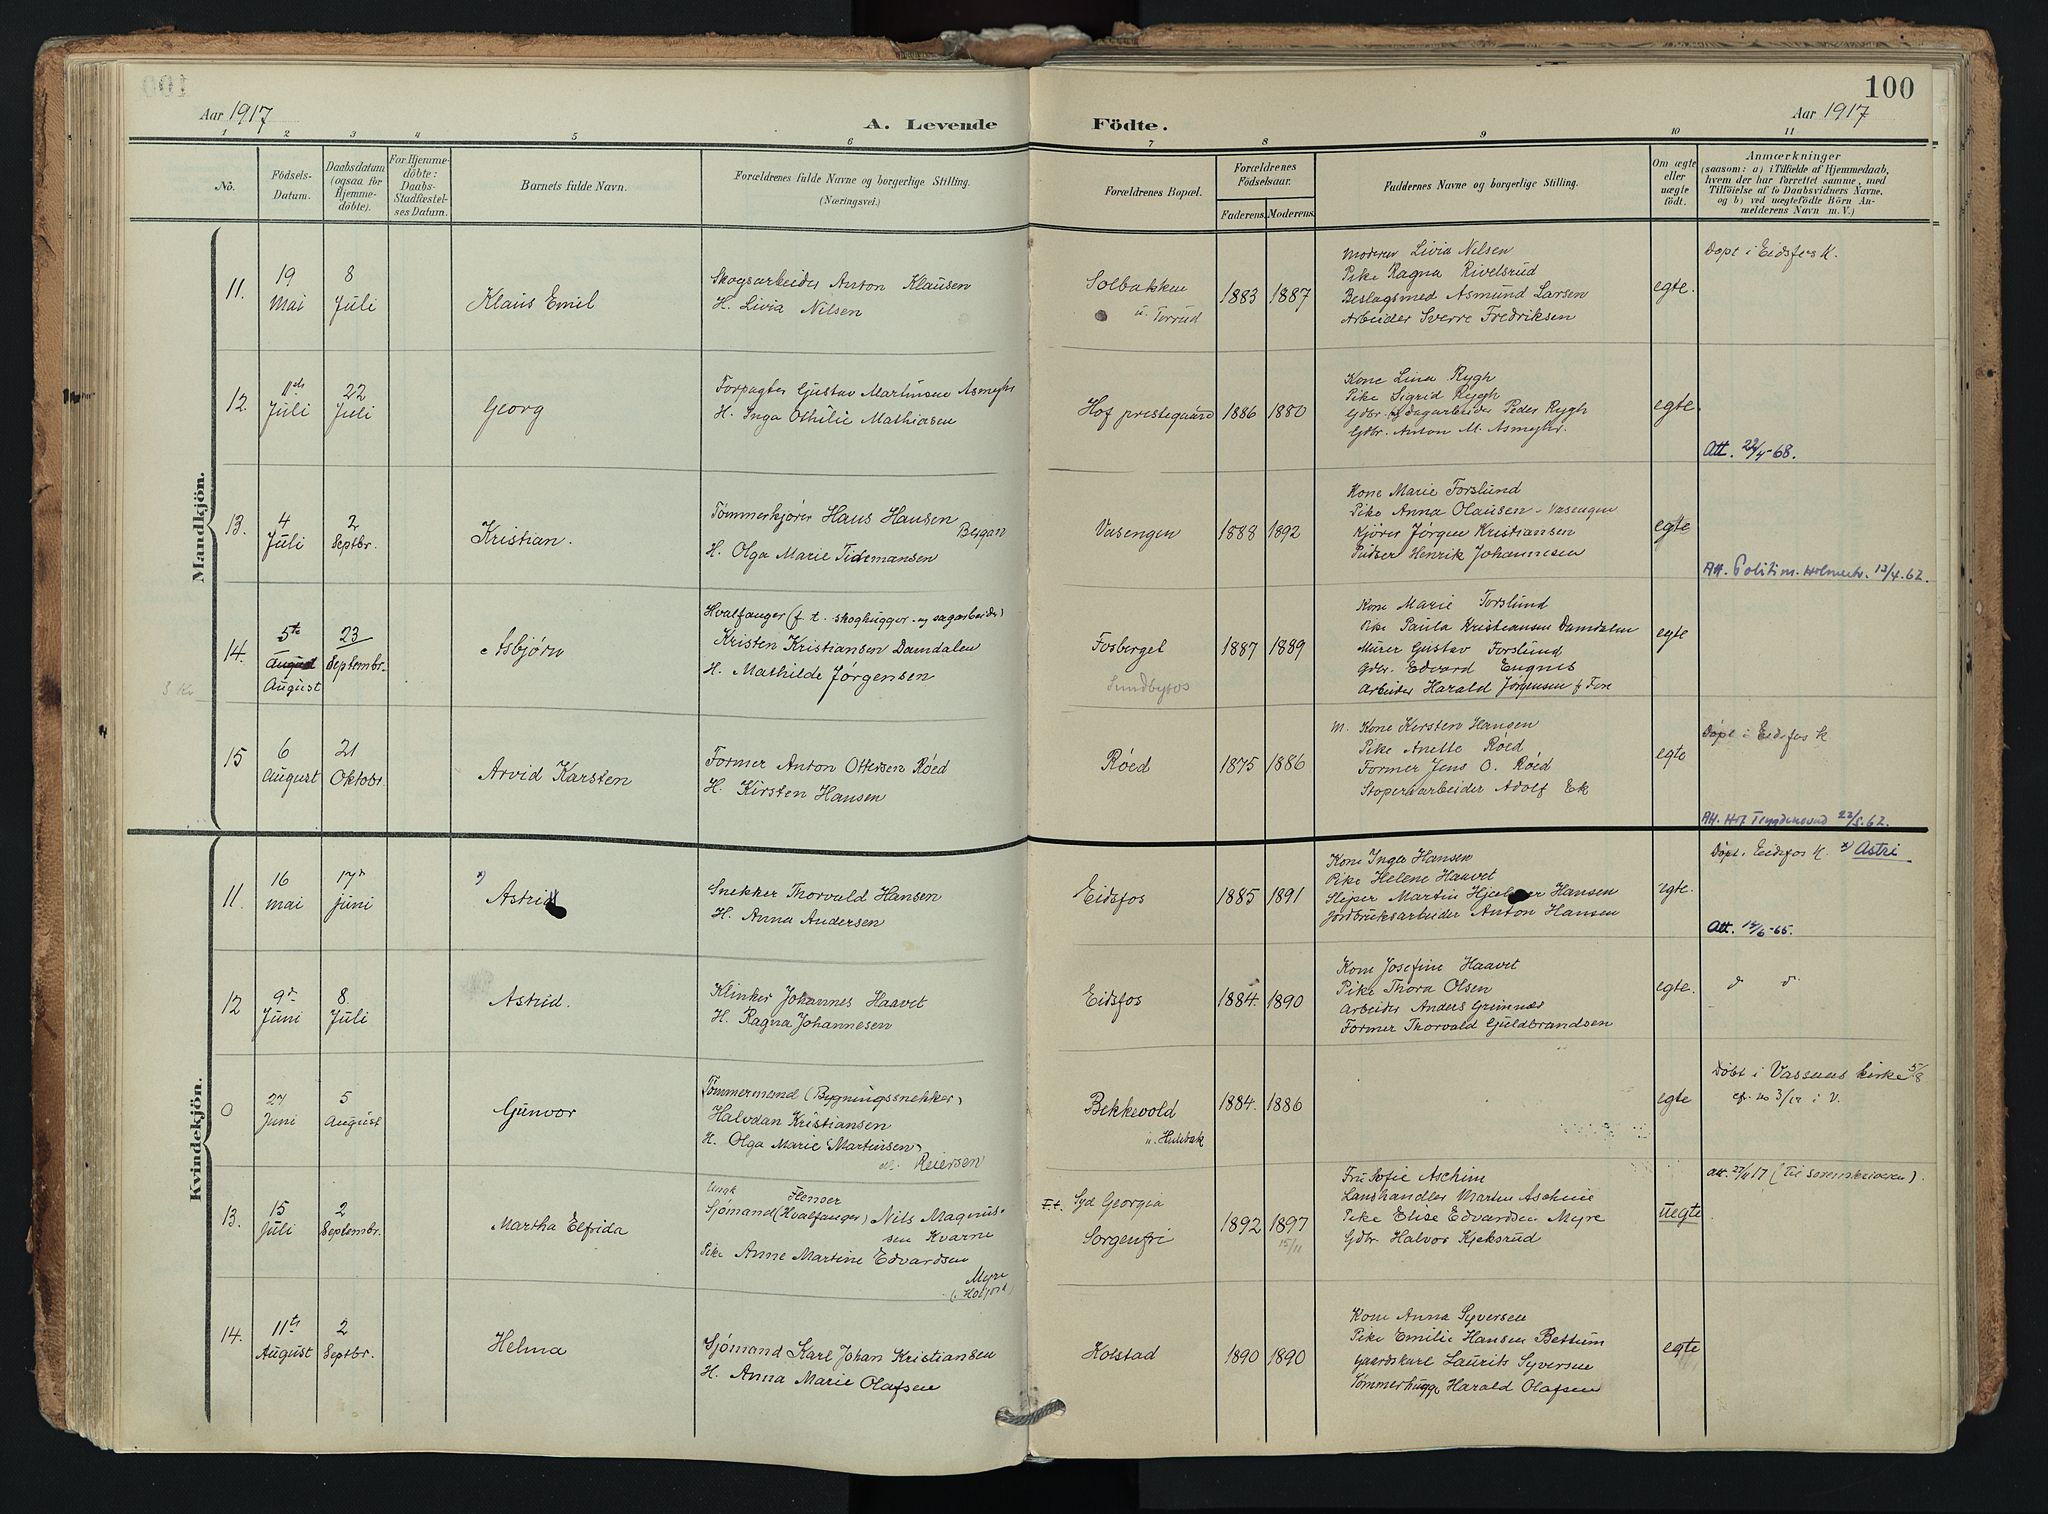 100
Aar 1917
A. Levende Födte.
Aar 1917
1 2 3 4 5 6 7 8 9 10 11
No.
Födsels-Datum.
Daabsdatum (ogsaa for Hjemme-döbte).
For Hjemme-döbte: Daabs-Stadfæstel-ses Datum.
Barnets fulde Navn.
Forældrenes fulde Navne og borgerlige Stilling.
(Næringsvei.)
Forældrenes Bopæl.
Forældrenes Födselsaar.
Faderens. Moderens.
Faddernes Navne og borgerlige Stilling.
Om ægte eller uægte födt.
Anmærkninger
(saasom: a) i Tilfælde af Hjemmedaab, hvem der har forrettet samme, med Tilföielse af to Daabsvidners Navne, og b) ved uægtefödte Börn An-melderens Navn m. V.)
Mandkjön.
11. 19 Mai 8 Juli Klaus Emil
Skogsarbeider Anton Klausen
H. Livia Nilsen
Solbakken
u. Torrud
1883 1887
Moderen Livia Nilsen
Pike Ragna Rivelsrud
Beslagsmed Asmund Larsen
Arbeider Sverre Fredriksen
egte.
Døpt i Eidsfos K.
12. 11de Juli 22 Juli Georg
Forpagter Gustav Martinsen Asmyhr
H. Inga Othilie Mathiasen
Hof prestegaard
1886 1880
Kone Lina Rygh
Pike Sigrid Rygh
Gdbr. dagarbeider Peder Rygh
Gdbr. Anton M. Asmyhr.
egte.
Att. 22/4-68.
13. 4 Juli 2 Septbr. Kristian.
Tømmerkjører Hans Hansen
Bergan
H. Olga Marie Tidemansen
Vasengen
1888 1892
Kone Marie Forslund
Pike Anna Olausen - Vasengen
Kjører Jørgen Kristiansen
Pudser Henrik Johannesen
egte
Att. Politim. Holmestr. 13/4.62.
14. 5te August August 23 Septembr. Asbjørn
3 Kr
Hvalfanger (f. t. skoghugger og sagarbeider)
Kristen Kristiansen Damdalen
H. Mathilde Jørgensen
Fosberget
Sundbyfos
1887 1889
Kone Marie Forslund
Pike Paula Kristiansen Damdalen
Murer Gustav Forslund
Gdbr. Edvard Engnes
Arbeider Harald Jørgensen f
egte
15 6 August 21 Oktobr. Arvid Karsten
Former Anton Ottersen Røed
H. Kirsten Hansen
Røed
1875 1886
M. Kone Kersten Hansen
Pike Anette Røed
Former Jens O. Røed
Stoperaarbeider Adolf Ek
egte
Døpt i Eidsfos K
Att. Hof Trygdekontor 22/5.62.
Kvindekjön.
11. 16 mai 17de juni x) Astrid
Snekker Thorvald Hansen
H. Anna Andersen
Eidsfos
1885 1891
Kone Inga Hansen
Pike Helene Haavet
Sliper Martin Hjalmer Hansen
Jordbruksarbeider Anton Hansen
egte.
Døpt i Eidsfos K. x) Astri
Att. 14/6-65.
12 9de Juni 8. Juli Astrid.
Klinker Johannes Haavet
H. Ragna Johannesen
Eidsfos
1884. 1890
Kone Josefine Haavet
Pike Thora Olsen
Arbeider Anders Grimnæs
Former Thorvald Guldbrandsen
egte.
d d
0 27 Juni 5 August Gunvor
Tømmermand (Bygningssnekker)
Halvdan Kristiansen
H. Olga Marie Martinsen
Reiersen
Bekkevold
u. Hulebak
1884. 1886
egte
Døbt i Vassenes kirke 5/8
cfr. no 3/17 i V.
13. 15 Juli 2 Septembr. Martha Elfrida
Ungk Flenser
Sjømand (Hvalfanger) Nils Magnus-
sen Kvarne
Pike Anne Martine Edvardsen
Myre
F.t. Syd Georgia
Sorgenfri
1892 1897
15/11
Fru Sofie Aschim
Landhandler Marten Aschim
Pike Elise Edvardsen Myre
Gdbr Halvor Kjeksrud
uegte
Att. 27/11 17 (til sorenskriveren).
14. 11te August 2 Septbr. Helma
Sjømand Karl Johan Kristiansen
H. Anna Marie Olafsen
Kolstad
1890 1890
Kone Anna Syversen
Pike Emilie Hansen Bettum
Gaardskarl Laurits Syversen
Tømmerhugg. Harald Olafsen
egte